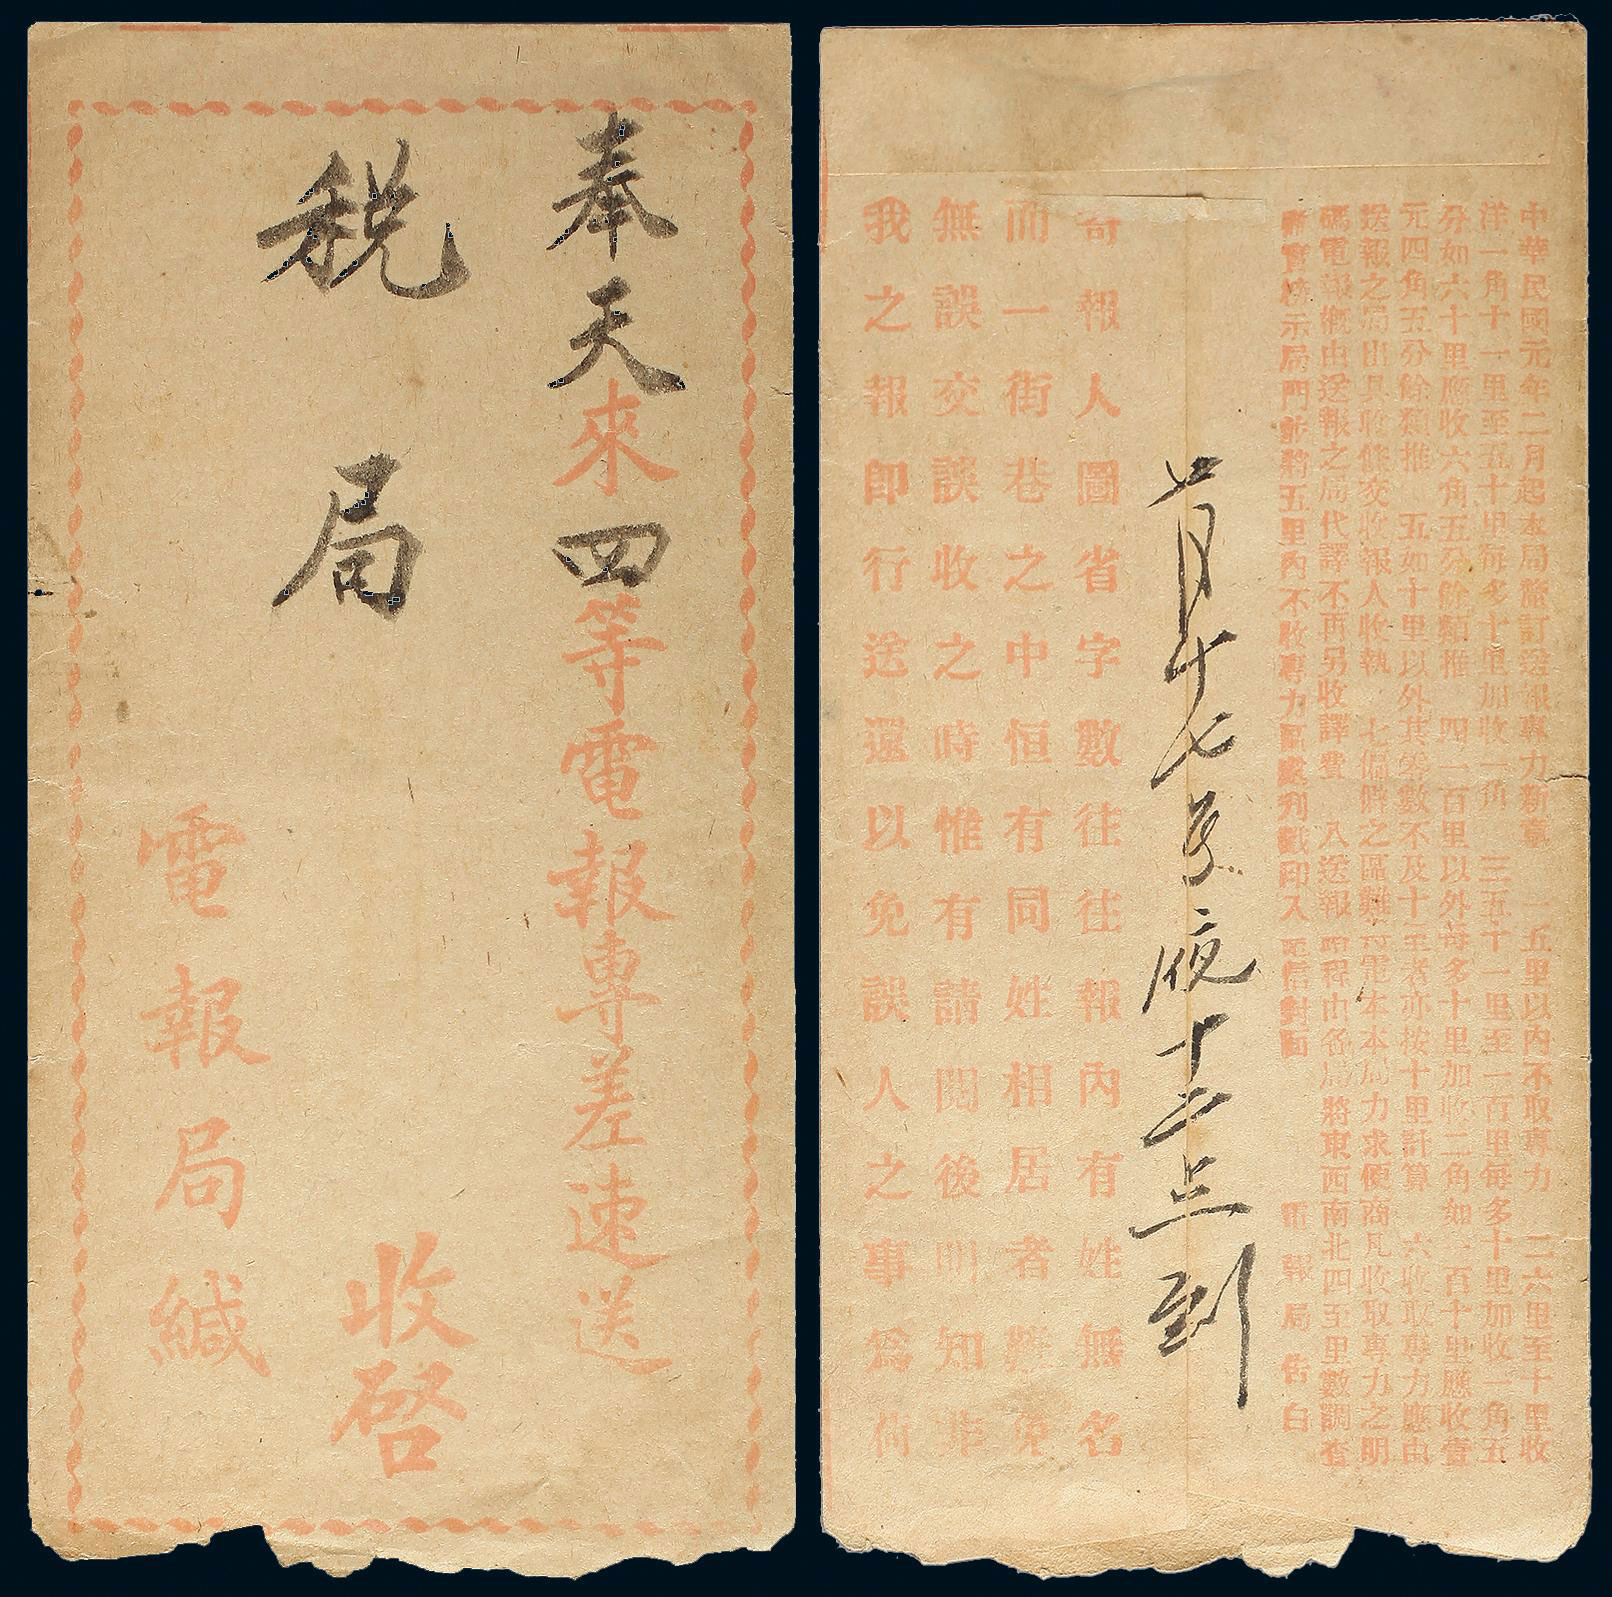 奉天來四等電報專差速送
稅局
收啓
電報局緘
中華民國元年二月起本局釐訂送報專力新章 一五里以內不取專力 二六里至十里收
洋一角十一里至五十里每多十里加收一角 三五十一里至一百里每多十里加收一角五
分如六十里應收六角五分餘類推 四一百里以外每多十里加收二角如一百十里應收壹
元四角五分餘類推 五如十里以外其零數不及十里者亦按十里計算 六收取專力應由
送報之局出具收條交收報人收執 七偏僻之區難
碼電報概由送報之局代譯不再另收譯費 八送報路程由各局將東西南北四至里數調查
示局門並將五里內不收專力區處列戳印入
電報局告白
寄報人圖省字數往往報內有姓無名
而一街巷之中恒有同姓相居者難免
無誤交誤收之時惟有請閱後明知非
我之報即行送還以免誤人之事為荷
月十七
夜十二点到